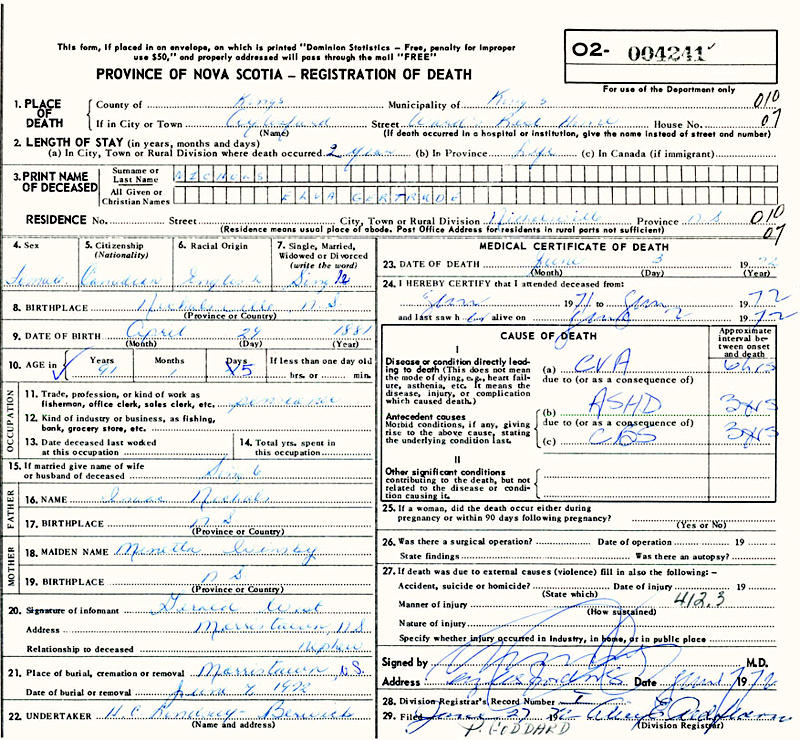 This form, if placed in an envelope, on which is printed "Dominion Statistics – Free, penalty for improper
use $50," and properly addressed will pass through the mail "FREE"
O2- 004241
PROVINCE OF NOVA SCOTIA – REGISTRATION OF DEATH
For use of the Department only
1. PLACE OF DEATH
County of Kings Municipality of Kings 010
If in City or Town Aylesford Street Ward's Rest Home House No. 07
(Name) (If death occurred in a hospital or institution, give the name instead of street and number)
2. LENGTH OF STAY (in years, months and days)
(a) In City, Town or Rural Division where death occurred 2 years (b) In Province Life (c) In Canada (if immigrant)
3. PRINT NAME OF DECEASED
Surname or Last Name NICHOLS
All Given or Christian Names ELVA GERTRUDE
RESIDENCE No. Street City, Town or Rural Division Nicholsville Province N S 010
(Residence means usual place of abode. Post Office Address for residents in rural parts not sufficient) 07
4. Sex Female
5. Citizenship (Nationality) Canadian
6. Racial Origin English
7. Single, Married, Widowed or Divorced (write the word) Single
8. BIRTHPLACE Nicholsville, N.S
(Province or Country)
9. DATE OF BIRTH April 29 1881
(Month) (Day) (Year)
10. AGE in Years 91 Months 1 Days 5 If less than one day old
hrs. or min.
OCCUPATION
11. Trade, profession, or kind of work as fisherman, office clerk, sales clerk, etc. pensioner
12. Kind of industry or business, as fishing, bank, grocery store, etc.
13. Date deceased last worked at this occupation
14. Total yrs. spent in this occupation
15. If married give name of wife or husband of deceased Single
FATHER
16. NAME Isaac Nichols
17. BIRTHPLACE N S
(Province or Country)
MOTHER
18. MAIDEN NAME Minetta
19. BIRTHPLACE N S
(Province or Country)
20. Signature of informant Gerald West
Address Morristown, N.S
Relationship to deceased Nephew
21. Place of burial, cremation or removal Morristown, N.S.
Date of burial or removal June 1972
22. UNDERTAKER H C Lindsay - Berwick
(Name and address)
MEDICAL CERTIFICATE OF DEATH
23. DATE OF DEATH June 3 1972
(Month) (Day) (Year)
24. I HEREBY CERTIFY that I attended deceased from:
1971 to June 1972
and last saw her alive on June 2 1972
CAUSE OF DEATH
Approximate interval between onset and death
I
Disease or condition directly leading to death (This does not mean the mode of dying, e.g., heart failure, asthenia, etc. It means the disease, injury, or complication which caused death.)
(a) CVA 6 hrs
due to (or as a consequence of)
Antecedent causes
Morbid conditions, if any, giving rise to the above cause, stating the underlying condition last.
(b) ASHD 3 yrs
due to (or as a consequence of)
(c) CBS 3 yrs
II
Other significant conditions
contributing to the death, but not related to the disease or condition causing it.
25. If a woman, did the death occur either during pregnancy or within 90 days following pregnancy?
(Yes or No)
26. Was there a surgical operation? Date of operation 19
State findings Was there an autopsy?
27. If death was due to external causes (violence) fill in also the following: –
Accident, suicide or homicide? Date of injury 19
(State which)
Manner of injury 412.3
(How sustained)
Nature of injury
Specify whether injury occurred in Industry, in home, or in public place
Signed by M.D.
Address Date June 1972
28. Division Registrar's Record Number
29. Filed June 27 19
(Division Registrar)
P. GODDARD